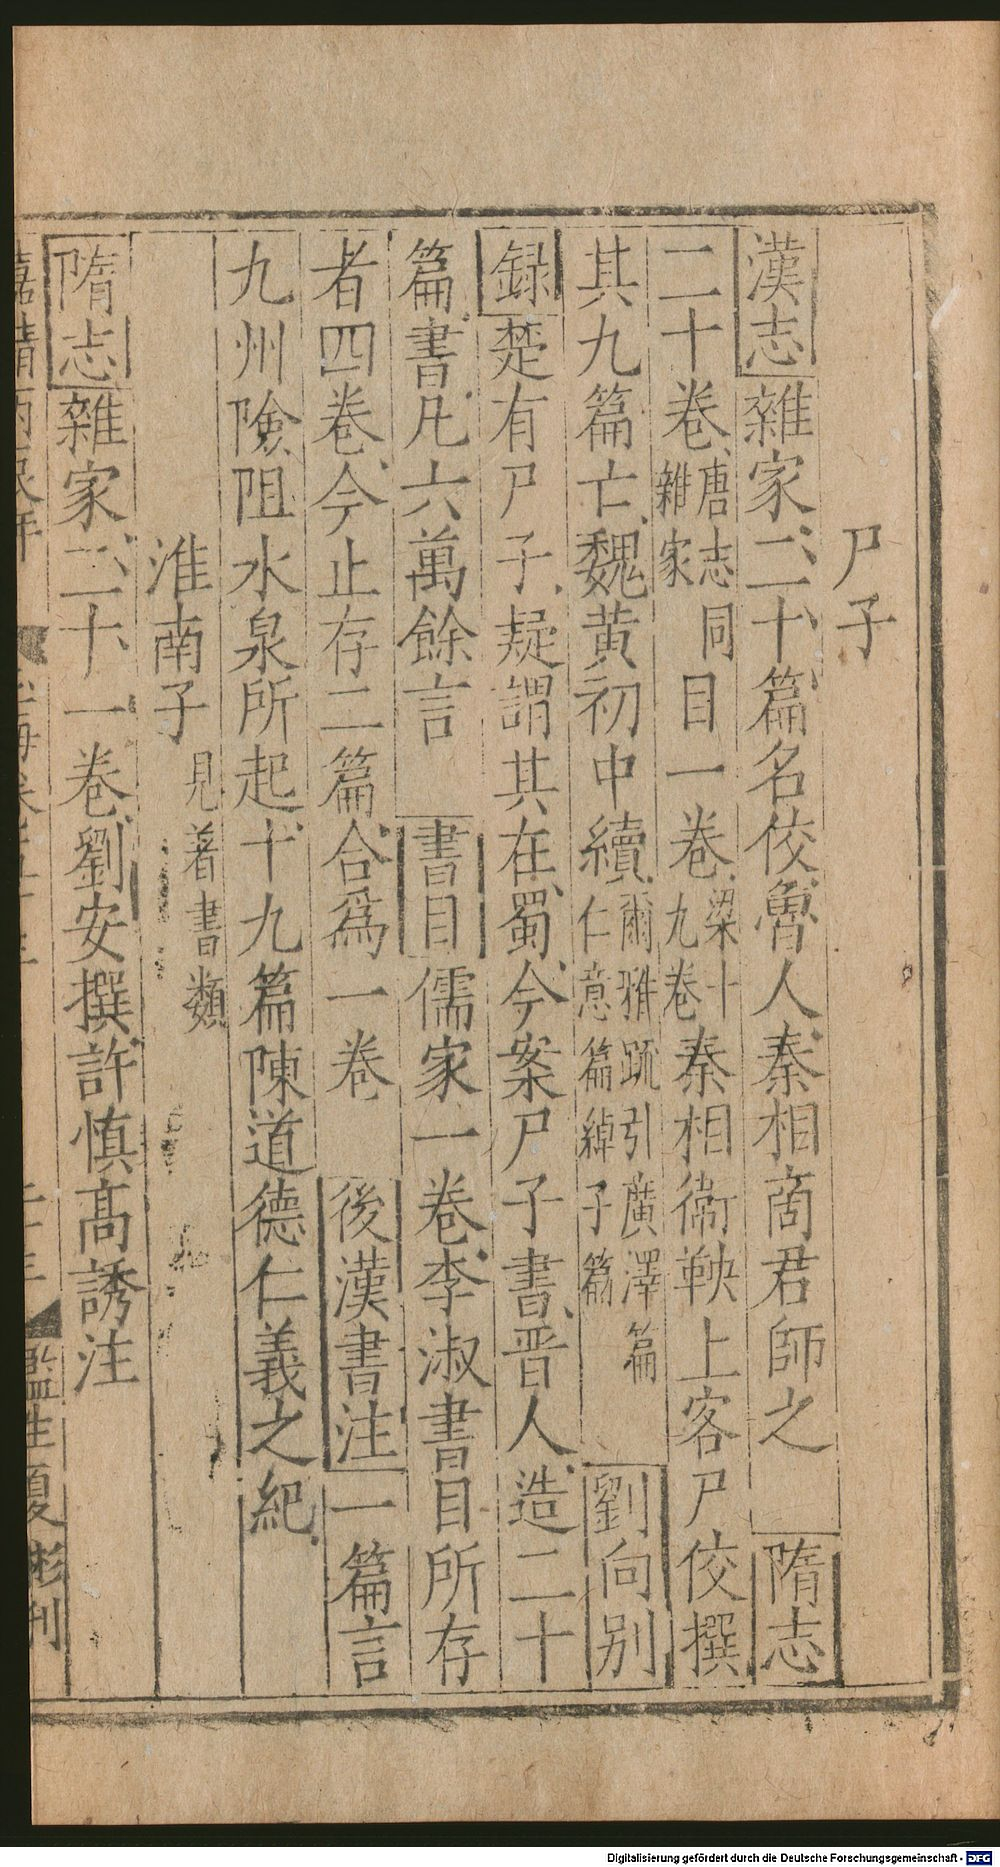 尸子
漢志雜家二十篇名佼魯人秦相商君師之 隋志
二十卷唐志同雜家 目一卷梁十九卷秦相衞鞅上客尸佼撰
其九篇亡魏黄初中續爾雅疏引廣澤篇仁意篇綽子篇 劉向别
録楚有尸子疑謂其在蜀今案尸子書晋人造二十
篇書凡六萬餘言 書目儒家一卷李淑書目所存
者四卷今止存二篇合爲一卷 後漢書注一篇言
九州險阻水泉所起十九篇陳道德仁義之紀
淮南子見著書類
隋志雜家二十一卷劉安撰許慎高誘注
監生夏彬刊
Digitalisierung gefördert durch die Deutsche Forschungsgemeinschaft - DFG